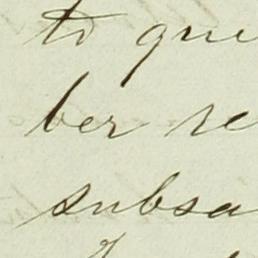 to que
ber re
subsa